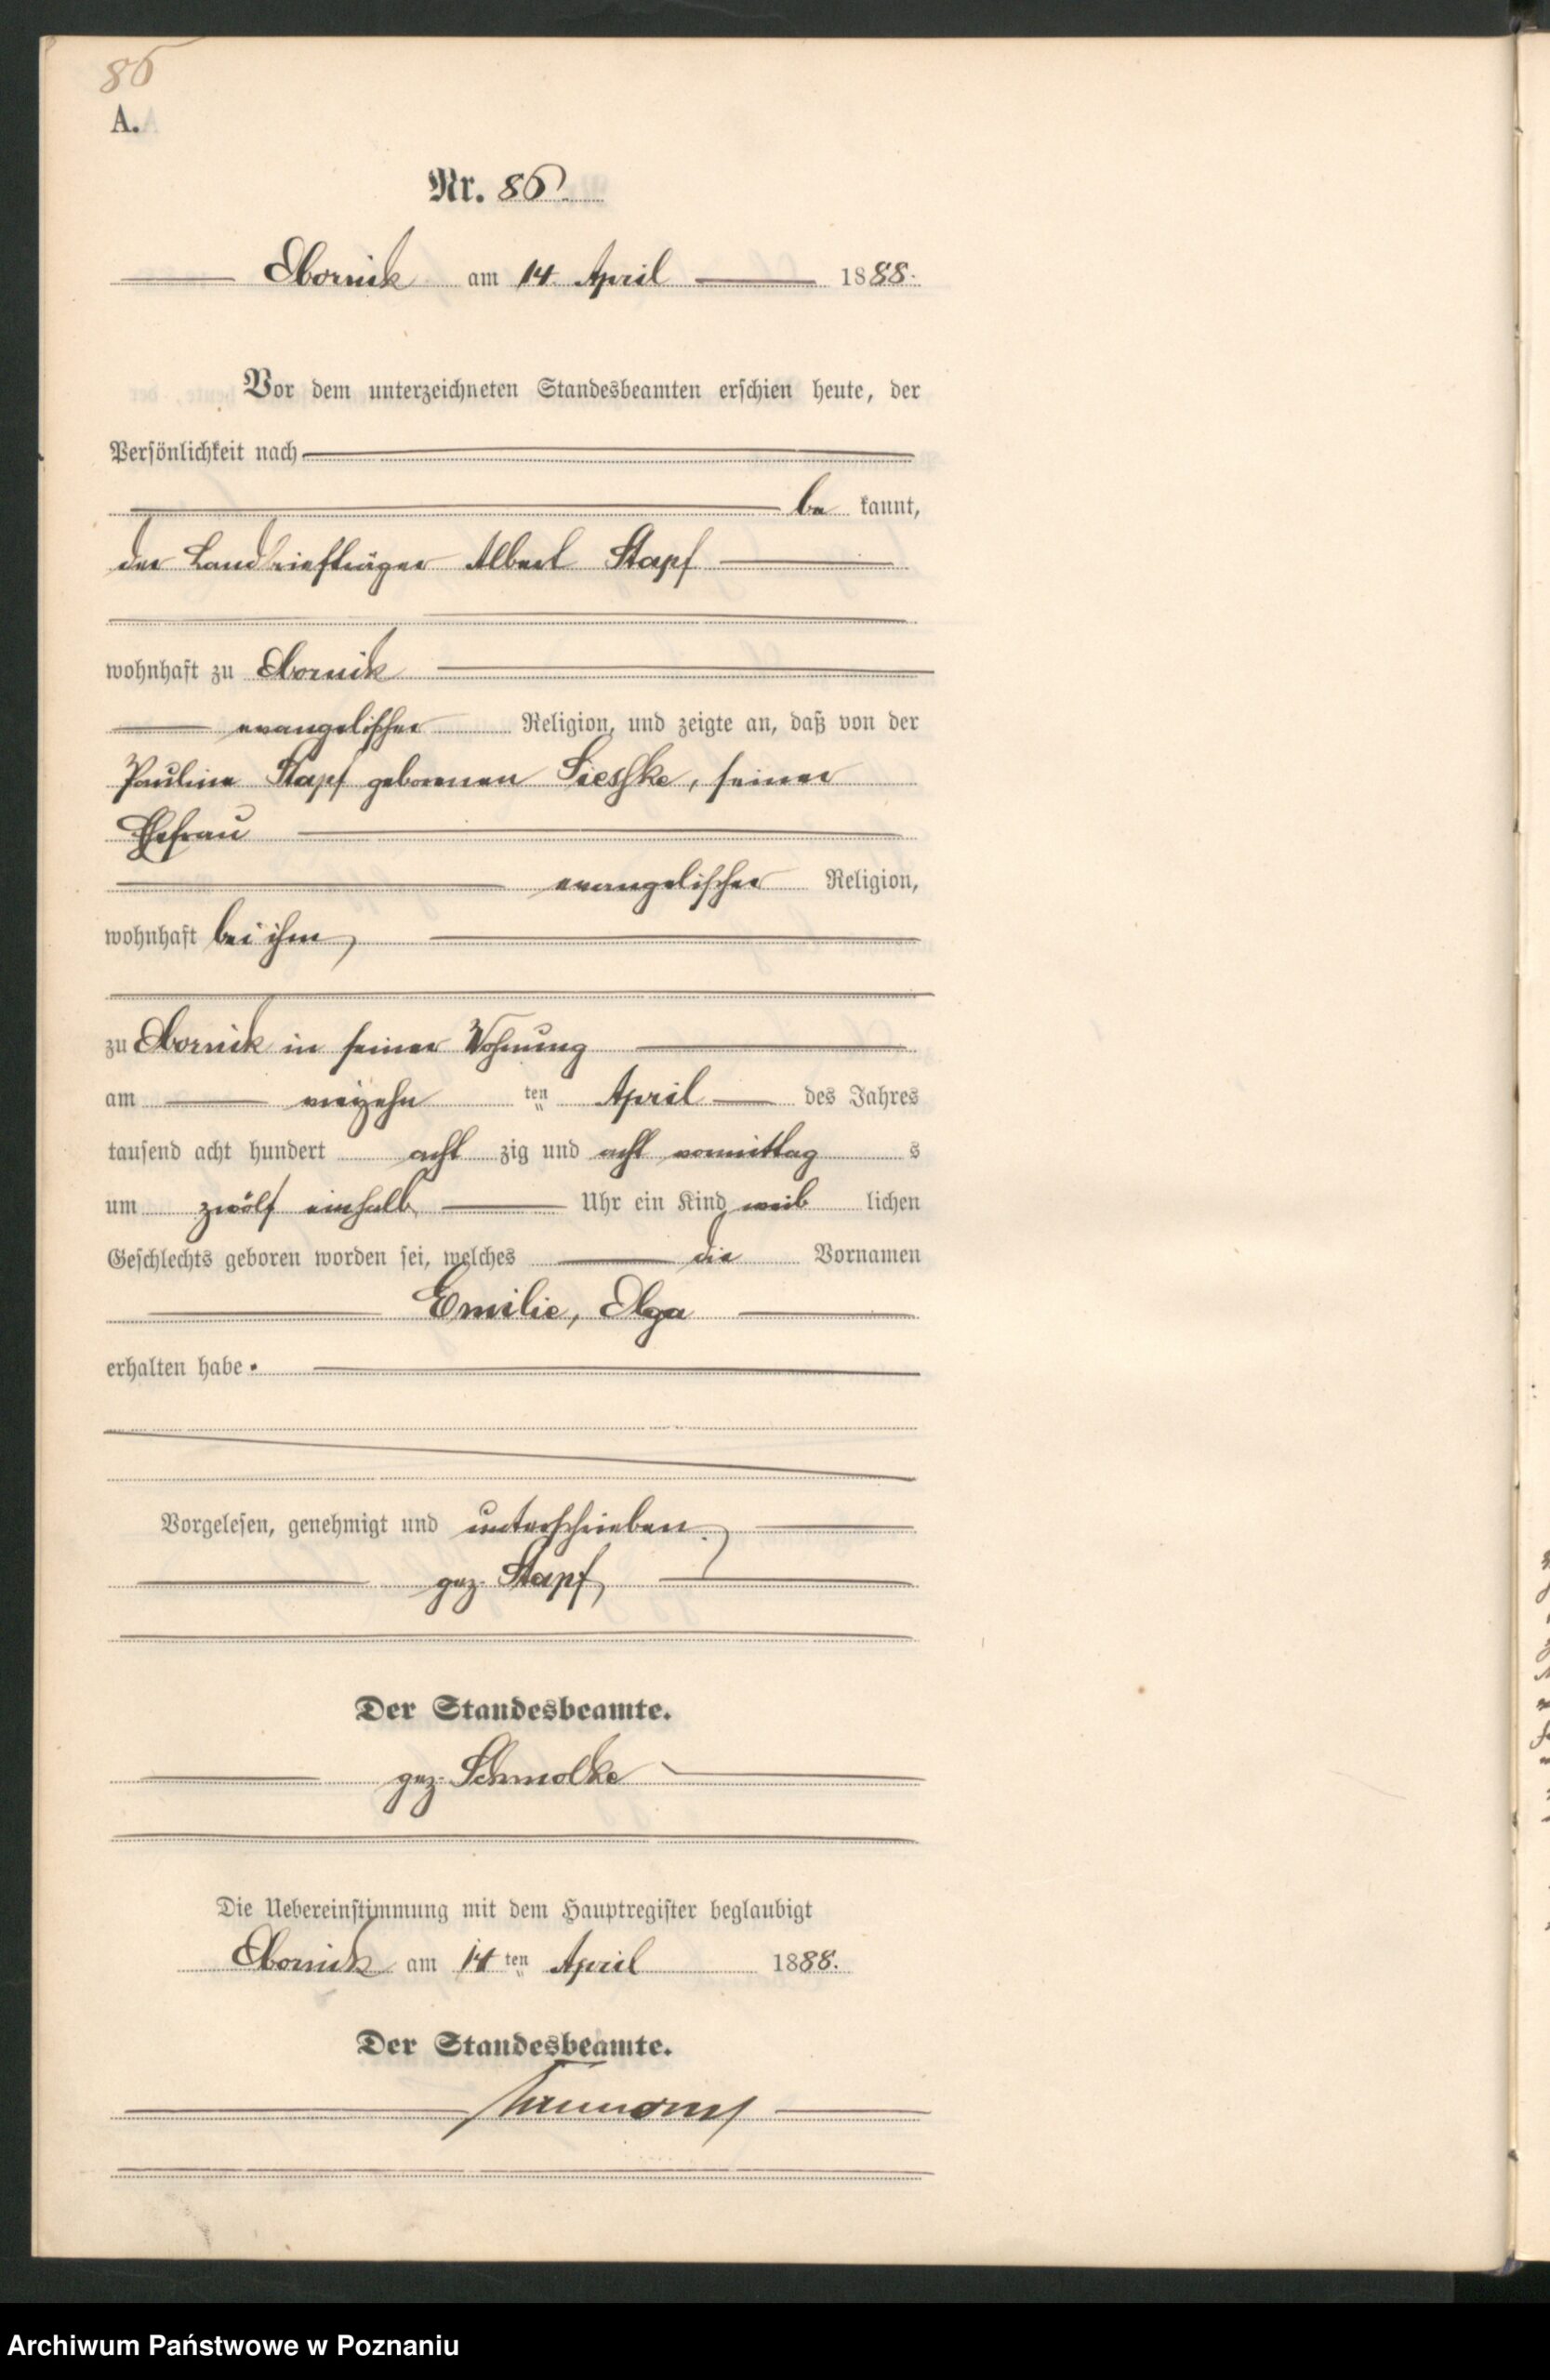 86
A.
Nr. 86
Obornik am 14. April 1888.
Vor dem unterzeichneten Standesbeamten erschien heute, der
Persönlichkeit nach
be kannt,
der Landbriefträger Albert Stapf
wohnhaft zu Obornik
evangelischer Religion, und zeigte an, daß von der
Pauline Stapf geborenen Liesske, seiner
Ehefrau
evangelischer Religion,
wohnhaft bei ihm,
zu Obornik in seiner Wohnung
am vierzehn ten April des Jahres
tausend acht hundert acht zig und acht vormittag s
um zwölf einhalb Uhr ein Kind weib lichen
Geschlechts geboren worden sei, welches die Vornamen
Emilie, Olga
erhalten habe.
Vorgelesen, genehmigt und unterschrieben.
gez. Stapf,
Der Standesbeamte.
gez. Schmolke
Die Uebereinstimmung mit dem Hauptregister beglaubigt
Obornik am 14 ten April 1888.
Der Standesbeamte.
Archiwum Państwowe w Poznaniu